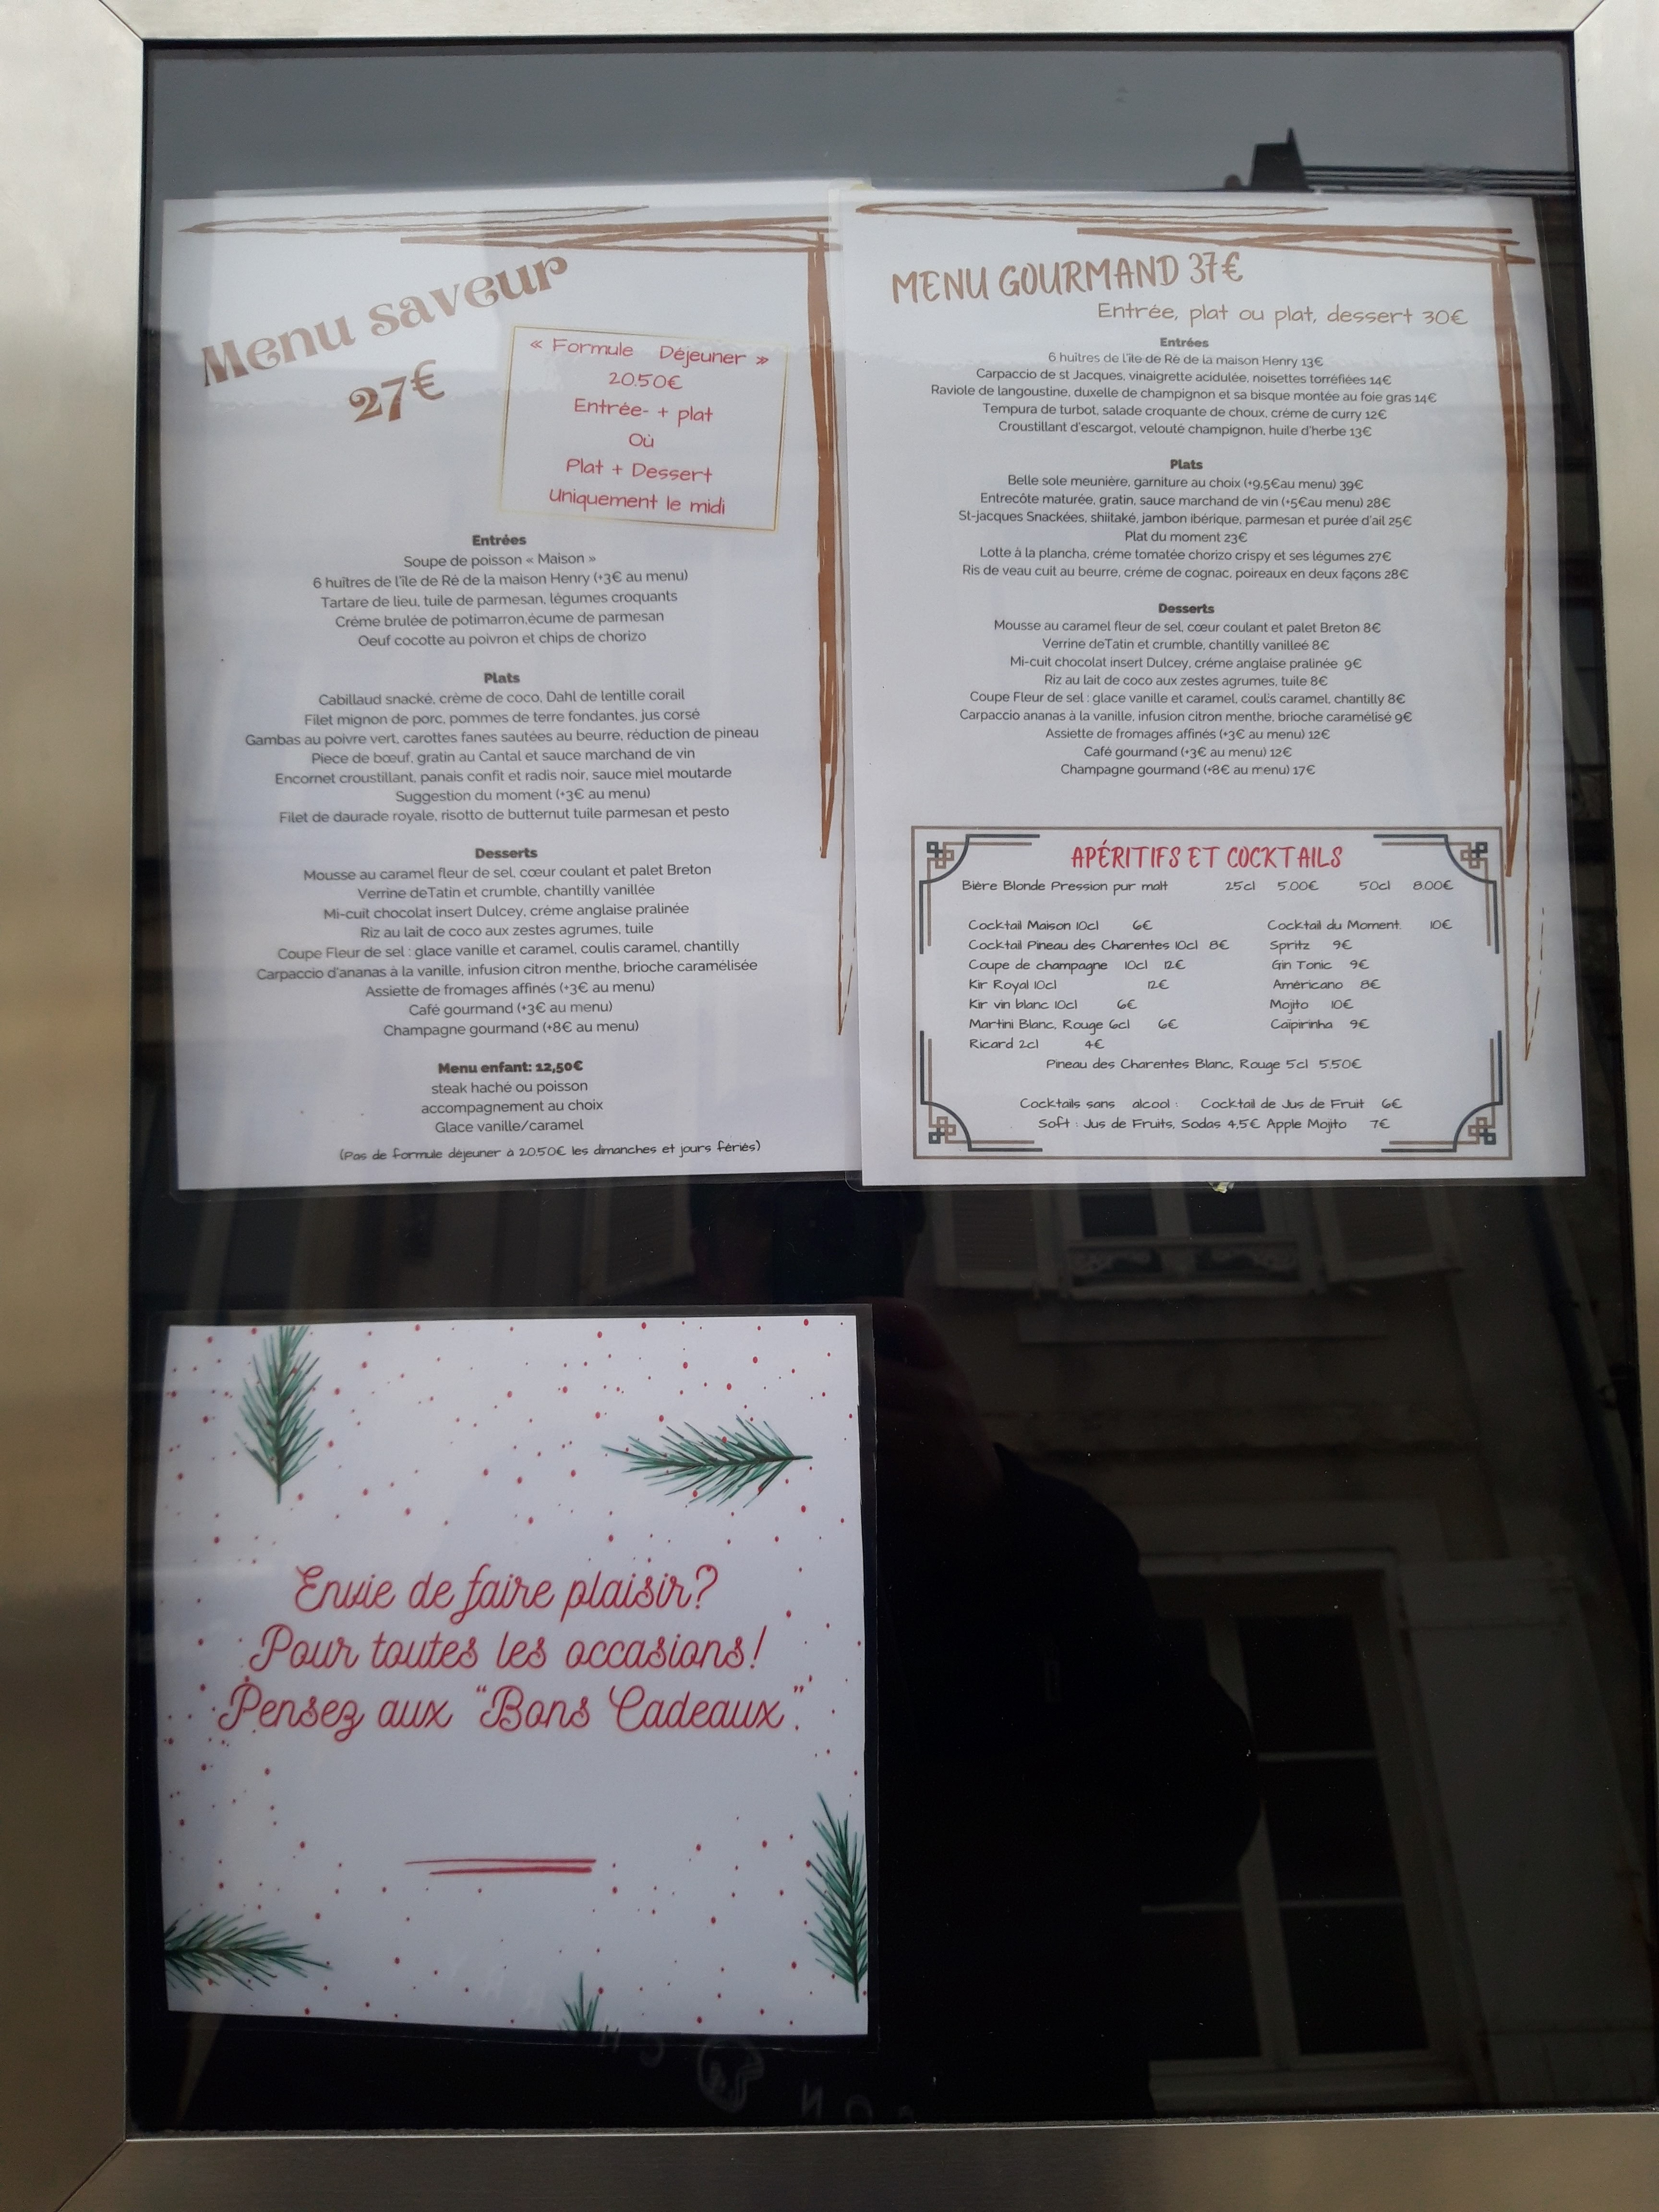 Menu saveur
27€
« Formule Déjeuner »
20.50€
Entrée- + plat
Où
Plat + Dessert
uniquement le midi
Entrées
Soupe de poisson « Maison »
6 huîtres de l'île de Ré de la maison Henry (+3€ au menu)
Tartare de lieu, tuile de parmesan, légumes croquants
Créme brulée de potimarron,écume de parmesan
Oeuf cocotte au poivron et chips de chorizo
Plats
Cabillaud snacké, crème de coco, Dahl de lentille corail
Filet mignon de porc, pommes de terre fondantes, jus corsé
Gambas au poivre vert, carottes fanes sautées au beurre, réduction de pineau
Piece de bœuf, gratin au Cantal et sauce marchand de vin
Encornet croustillant, panais confit et radis noir, sauce miel moutarde
Suggestion du moment (+3€ au menu)
Filet de daurade royale, risotto de butternut tuile parmesan et pesto
Desserts
Mousse au caramel fleur de sel, cœur coulant et palet Breton
Verrine deTatin et crumble, chantilly vanillée
Mi-cuit chocolat insert Dulcey, créme anglaise pralinée
Riz au lait de coco aux zestes agrumes, tuile
Coupe Fleur de sel : glace vanille et caramel, coulis caramel, chantilly
Carpaccio d'ananas à la vanille, infusion citron menthe, brioche caramélisée
Assiette de fromages affinés (+3€ au menu)
Café gourmand (+3€ au menu)
Champagne gourmand (+8€ au menu)
Menu enfant: 12,50€
steak haché ou poisson
accompagnement au choix
Glace vanille/caramel
(Pas de formule déjeuner à 20.50€ les dimanches et jours fériés)
MENU GOURMAND 37€
Entrée, plat ou plat, dessert 30€
Entrées
6 huîtres de l'île de Ré de la maison Henry 13€
Carpaccio de st Jacques, vinaigrette acidulée, noisettes torréfiées 14€
Raviole de langoustine, duxelle de champignon et sa bisque montée au foie gras 14€
Tempura de turbot, salade croquante de choux, créme de curry 12€
Croustillant d'escargot, velouté champignon, huile d'herbe 13€
Plats
Belle sole meunière, garniture au choix (+9,5€au menu) 39€
Entrecôte maturée, gratin, sauce marchand de vin (+5€au menu) 28€
St-jacques Snackées, shiitaké, jambon ibérique, parmesan et purée d'ail 25€
Plat du moment 23€
Lotte à la plancha, créme tomatée chorizo crispy et ses légumes 27€
Ris de veau cuit au beurre, créme de cognac, poireaux en deux façons 28€
Desserts
Mousse au caramel fleur de sel, cœur coulant et palet Breton 8€
Verrine deTatin et crumble, chantilly vanilleé 8€
Mi-cuit chocolat insert Dulcey, créme anglaise pralinée 9€
Riz au lait de coco aux zestes agrumes, tuile 8€
Coupe Fleur de sel : glace vanille et caramel, coulis caramel, chantilly 8€
Carpaccio ananas à la vanille, infusion citron menthe, brioche caramélisé 9€
Assiette de fromages affinés (+3€ au menu) 12€
Café gourmand (+3€ au menu) 12€
Champagne gourmand (+8€ au menu) 17€
APÉRITIFS ET COCKTAILS
Bière Blonde Pression pur malt 25cl 5.00€ 50cl 8.00€
Cocktail Maison 10cl 6€ Cocktail du Moment. 10€
Cocktail Pineau des Charentes 10cl 8€ Spritz 9€
Coupe de champagne 10cl 12€ Gin Tonic 9€
Kir Royal 10cl 12€ Américano 8€
Kir vin blanc 10cl 6€ Mojito 10€
Martini Blanc, Rouge 6cl 6€ Caïpirinha 9€
Ricard 2cl 4€
Pineau des Charentes Blanc, Rouge 5cl 5.50€
Cocktails sans alcool : Cocktail de Jus de Fruit 6€
Soft : Jus de Fruits, Sodas 4,5€ Apple Mojito 7€
Envie de faire plaisir?
Pour toutes les occasions!
Pensez aux "Bons Cadeaux".